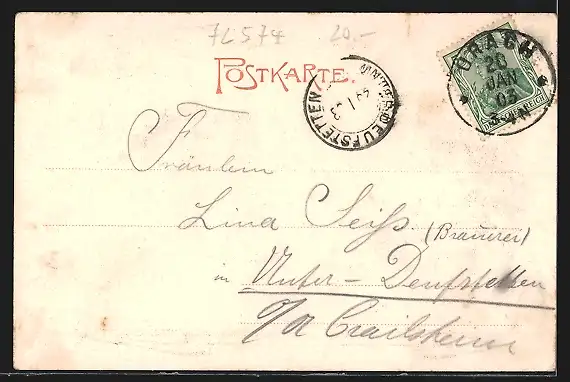 72574 20.-
POSTKARTE.
URACH
20
JAN
03
UNT. DEUFSTETTEN
Fräulein
Lina Seiss (Brauerei)
in Unter-Deufstetten
O/A Crailsheim